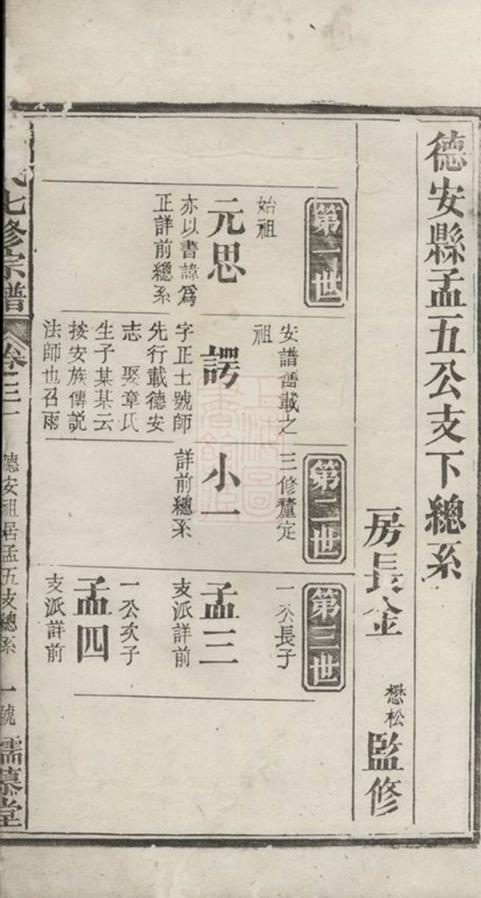 德安縣孟五公支下總系
房長金
懋松
監修
第一世
始祖
元思
亦以書諱爲
正詳前總系
安譜舊載之
祖
諤
字正士號師
先行載德安
志 娶章氏
生子某某云
按安族傳説
法師也召雨
第二世
三修釐定
小一
詳前總系
第三世
一公長子
孟三
支派詳前
一公次子
孟四
支派詳前
氏七修宗譜
卷三一
德安祖居孟五支總系
一號
孺慕堂